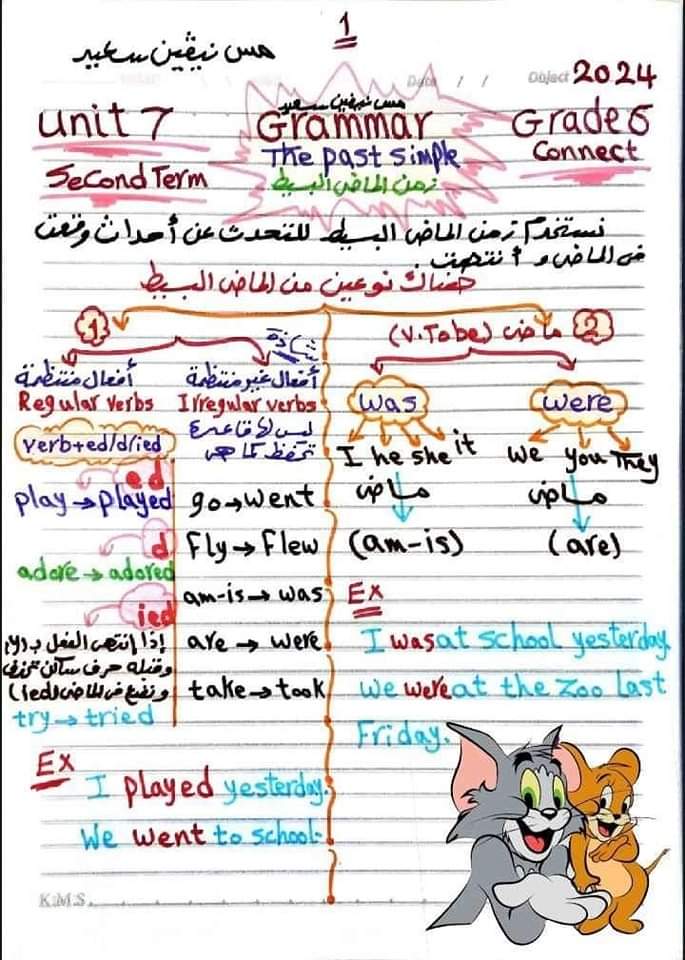 1
مس نيڤين سعيد
Date / / Object 2024
مس نيفين سعيد
Unit 7 Grammar Grade 6
The past simple Connect
Second Term زمن الماضى البسيط
نستخدم زمن الماضى البسيط للتحدث عن أحداث وقعت
فى الماضى و انتهت.
هناك نوعين من الماضى البسيط
1
2 ماضى (v.Tobe)
شاذة
أفعال منتظمة
Regular verbs
verb+ed/d/ied
ed
play → played
d
adore → adored
ied
إذا إنتهى الفعل بـ (y)
وقبله حرف ساكن تحذف
ونضع فى الماضى (ied)
try → tried
أفعال غير منتظمة
Irregular verbs
ليس لها قاعدة
تحفظ كما هى
go → went
Fly → Flew
am-is → was
are → were
take → took
Ex
I played yesterday.
We went to school.
was
I he she it
ماضى
(am-is)
were
we you They
ماضى
(are)
Ex
I was at school yesterday.
We were at the Zoo last
Friday.
K.M.S.